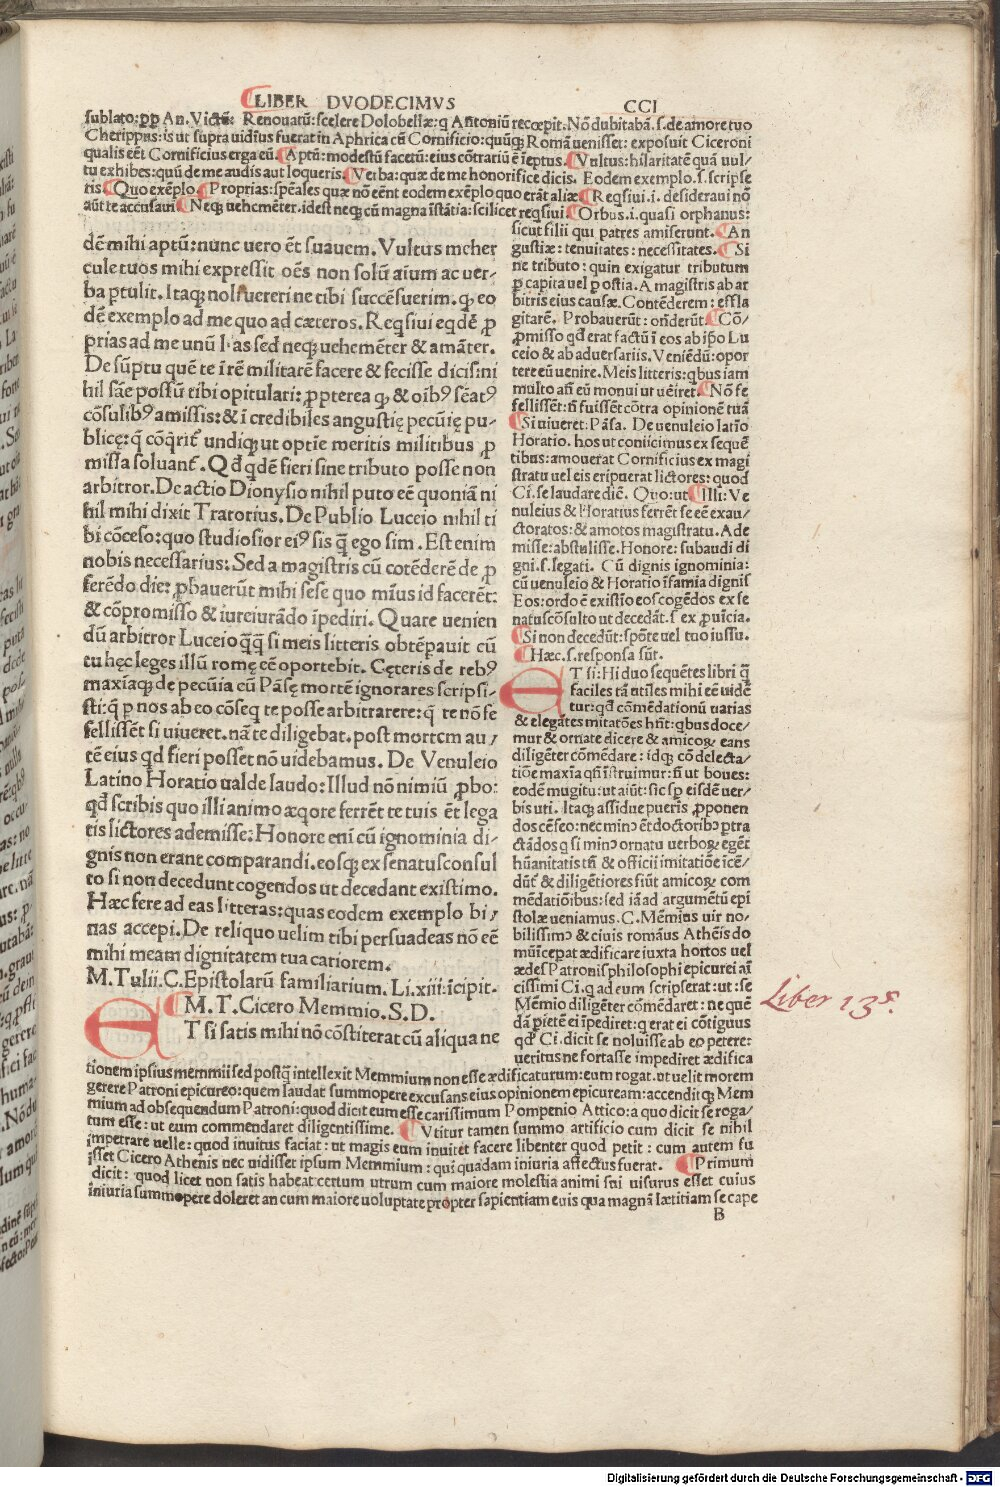 LIBER DVODECIMVS CCI
sublato: ꝓp An. Victũ: Renouatũ: scelere Dolobellæ: q Antoniũ recœpit. Nõ dubitabã. s. de amore tuo
Cherippus: is ut supra uidĩus fuerat in Aphrica cũ Cornificio: quũqꝫ Romã uenisset: exposuit Ciceroni
qualis eẽt Cornificius erga eũ. Aptũ: modestũ facetũ: eius cõtrariũ ẽ ĩeptus. Vultus: hilaritatẽ quã uul/
tu exhibes: quũ de me audis aut loqueris. Verba: quæ de me honorifice dicis. Eodem exemplo. s. scripse
ris Quo exẽplo Proprias: spẽales quæ nõ eẽnt eodem exẽplo quo erãt aliæ Reqsiui. i. desideraui nõ
aũt te accusaui Neqꝫ uehemẽter. idest neqꝫ cũ magna ĩstãtia: scilicet reqsiui Orbus. i. quasi orphanus:
dẽ mihi aptũ: nunc uero ẽt suauem. Vultus meher
cule tuos mihi expressit oẽs non solũ aĩum ac uer/
ba ptulit. Itaqꝫ noli uereri ne tibi succẽsuerim. qꝫ eo
dẽ exemplo ad me quo ad cæteros. Reqsiui eqdẽ ꝓ
prias ad me unũ l as sed neqꝫ uehemẽter & amãter.
De sũptu quẽ te ĩ rẽ militarẽ facere & fecisse dicis: ni
hil sãe possũ tibi opitulari: ꝓpterea qꝫ & oĩbꝰ sẽatꝰ
cõsulibꝰ amissis: & ĩ credibiles angustię pecũię pu/
blicę: q̃ cõqrĩt undiqꝫ ut optĩe meritis militibus ꝓ
missa soluant. Qd qdẽ fieri sine tributo posse non
arbitror. De actio Dionysio nihil puto eẽ quoniã ni
hil mihi dixit Tratorius. De Publio Luceio nihil ti
bi cõceso: quo studiosior eiꝰ sis q̃ ego sim. Est enim
nobis necessarius: Sed a magistris cũ cotẽderẽ de ꝓ
ferẽdo die: ꝓbauerũt mihi sese quo mĩus id facerẽt:
& cõpromisso & iureiurãdo ĩpediri. Quare uenien
dũ arbitror Luceio q̃q̃ si meis litteris obtẽpauit cũ
tu hęc leges illũ romę eẽ oportebit. Cęteris de rebꝰ
maxĩaqꝫ de pecũia cũ Pãsę mortẽ ignorares scripsi/
sti: q̃ p nos ab eo cõseq te posse arbitrarere: q̃ te nõ fe
fellissẽt si uiueret. nã te diligebat. post mortem au/
tẽ eius qd fieri posset nõ uidebamus. De Venuleio
Latino Horatio ualde laudo: Illud nõ nimiũ ꝓbo:
qd scribis quo illi animo æqore ferrẽt te tuis ẽt lega
tis lictores ademisse: Honore enĩ cũ ignominia di/
gnis non erant comparandi. eosqꝫ ex senatusconsul
to si non decedunt cogendos ut decedant existimo.
Hæc fere ad eas litteras: quas eodem exemplo bi/
nas accepi. De reliquo uelim tibi persuadeas nõ eẽ
mihi meam dignitatem tua cariorem.
M. Tulii. C. Epistolarũ familiarium. Li. xiii: ĩcipit.
M. T. Cicero Memmio. S. D.
ET si satis mihi nõ cõstiterat cũ aliqua ne
sicut filii qui patres amiserunt. An
gustiæ: tenuitates: necessitates. Si
ne tributo: quin exigatur tributum
ꝓ capita uel ꝓ ostia. A magistris ab ar
bitris eius causæ. Contẽderem: effla
gitarẽ. Probauerũt: oñderũt. Cõ/
ꝓmisso qd erat factũ ĩ eos ab ipo Lu
ceio & ab aduersariis. Veniẽdũ: opor
tere eũ uenire. Meis litteris: qbus iam
multo añ eũ monui ut uẽiret. Nõ fe
fellissẽt: ñ fuissẽt cõtra opinionẽ tuã
Si uiueret: Pãsa. De uenuleio latĩo
Horatio. hos ut coniicimus ex sequẽ
tibus: amouerat Cornificius ex magi
stratu uel eis eripuerat lictores: quod
Ci. se laudare diẽ. Quo: ut Illi: Ve
nuleius & Horatius ferrẽt se eẽ exau/
ctoratos: & amotos magistratu. Ade
misse: abstulisse. Honore: subaudi di
gni. s. legati. Cũ dignis ignominia:
cũ uenuleio & Horatio ĩfamia dignis
Eos: ordo ẽ existĩo eos cogẽdos ex se
natuscõsulto ut decedãt. s. ex ꝓuĩcia.
Si non decedũt: spõte uel tuo iussu.
Hæc. s. responsa sũt.
ET si: Hi duo sequẽtes libri q̃
faciles tã utiles mihi eẽ uidẽ
tur: qd cõmẽdationũ uarias
& elegãtes mitatões hñt: qbus doce/
mur & ornate dicere & amicoꝝ eans
diligẽter cõmẽdare: idqꝫ cõ delecta/
tiõe maxĩa qñ ĩstruimur: ñ ut boues:
eodẽ mugitu: ut aiũt: sic sp eisdẽ uer/
bis uti. Itaqꝫ assidue pueris ꝓponen
dos cẽseo: nec minꝰ ẽt doctoribꝰ ptra
ctãdos q si minꝰ ornatu uerboꝝ egẽt
hũanitatis tñ & officii imitatiõe ĩcẽ/
dũt & diligẽtiores fiũt amicoꝝ com
mẽdatiõibus: sed iã ad argumẽtũ epi
stolæ ueniamus. C. Mẽmius uir no/
bilissimꝰ & ciuis romãus Athẽis do
mũ ĩcepat ædificare iuxta hortos uel
ædes Patronis philosophi epicurei aĩ
cissimi Ci. q ad eum scripserat: ut: se
Mẽmio diligẽter cõmẽdaret: ne quẽ
dã pietẽ ei ĩpediret: q erat ei cõtiguus
qd Ci. dicit se noluisse ab eo petere:
ueritus ne fortasse impediret ædifica
tionem ipsius memmii sed postq̃ intellexit Memmium non esse ædificaturum: eum rogat. ut uelit morem
gerere Patroni epicureo: quem laudat summopere excusans eius opinionem epicuream: accenditqꝫ Mem
mium ad obsequendum Patroni: quod dicit eum esse carissimum Pompenio Attico: a quo dicit se roga/
tum esse: ut eum commendaret diligentissime. Vtitur tamen summo artificio cum dicit se nihil
impetrare uelle: quod inuitus faciat: ut magis eum inuitet facere libenter quod petit: cum autem fu
isset Cicero Athenis nec uidisset ipsum Memmium: qui quadam iniuria affectus fuerat. Primum
dicit: quod licet non satis habeat certum utrum cum maiore molestia animi sui uisurus esset cuius
iniuria summopere doleret an cum maiore uoluptate propter sapientiam euis qua magnã lætitiam se cape
B
Liber 13s.
Digitalisierung gefördert durch die Deutsche Forschungsgemeinschaft - DFG